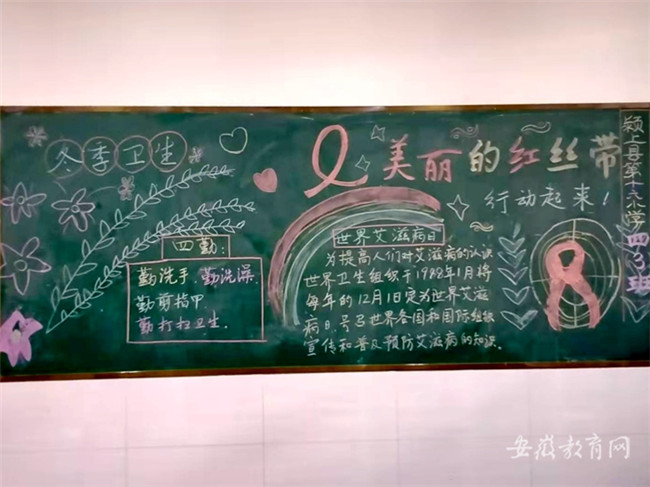 冬季卫生
四勤：
勤洗手、勤洗澡、
勤剪指甲
勤打扫卫生.
美丽的红丝带
行动起来！
世界艾滋病日
为提高人们对艾滋病的认识
世界卫生组织于1988年1月将
每年的12月1日定为世界艾滋
病日,号召世界各国和国际组织
宣传和普及预防艾滋病的知识.
颍上县第十六小学四3班
安徽教育网